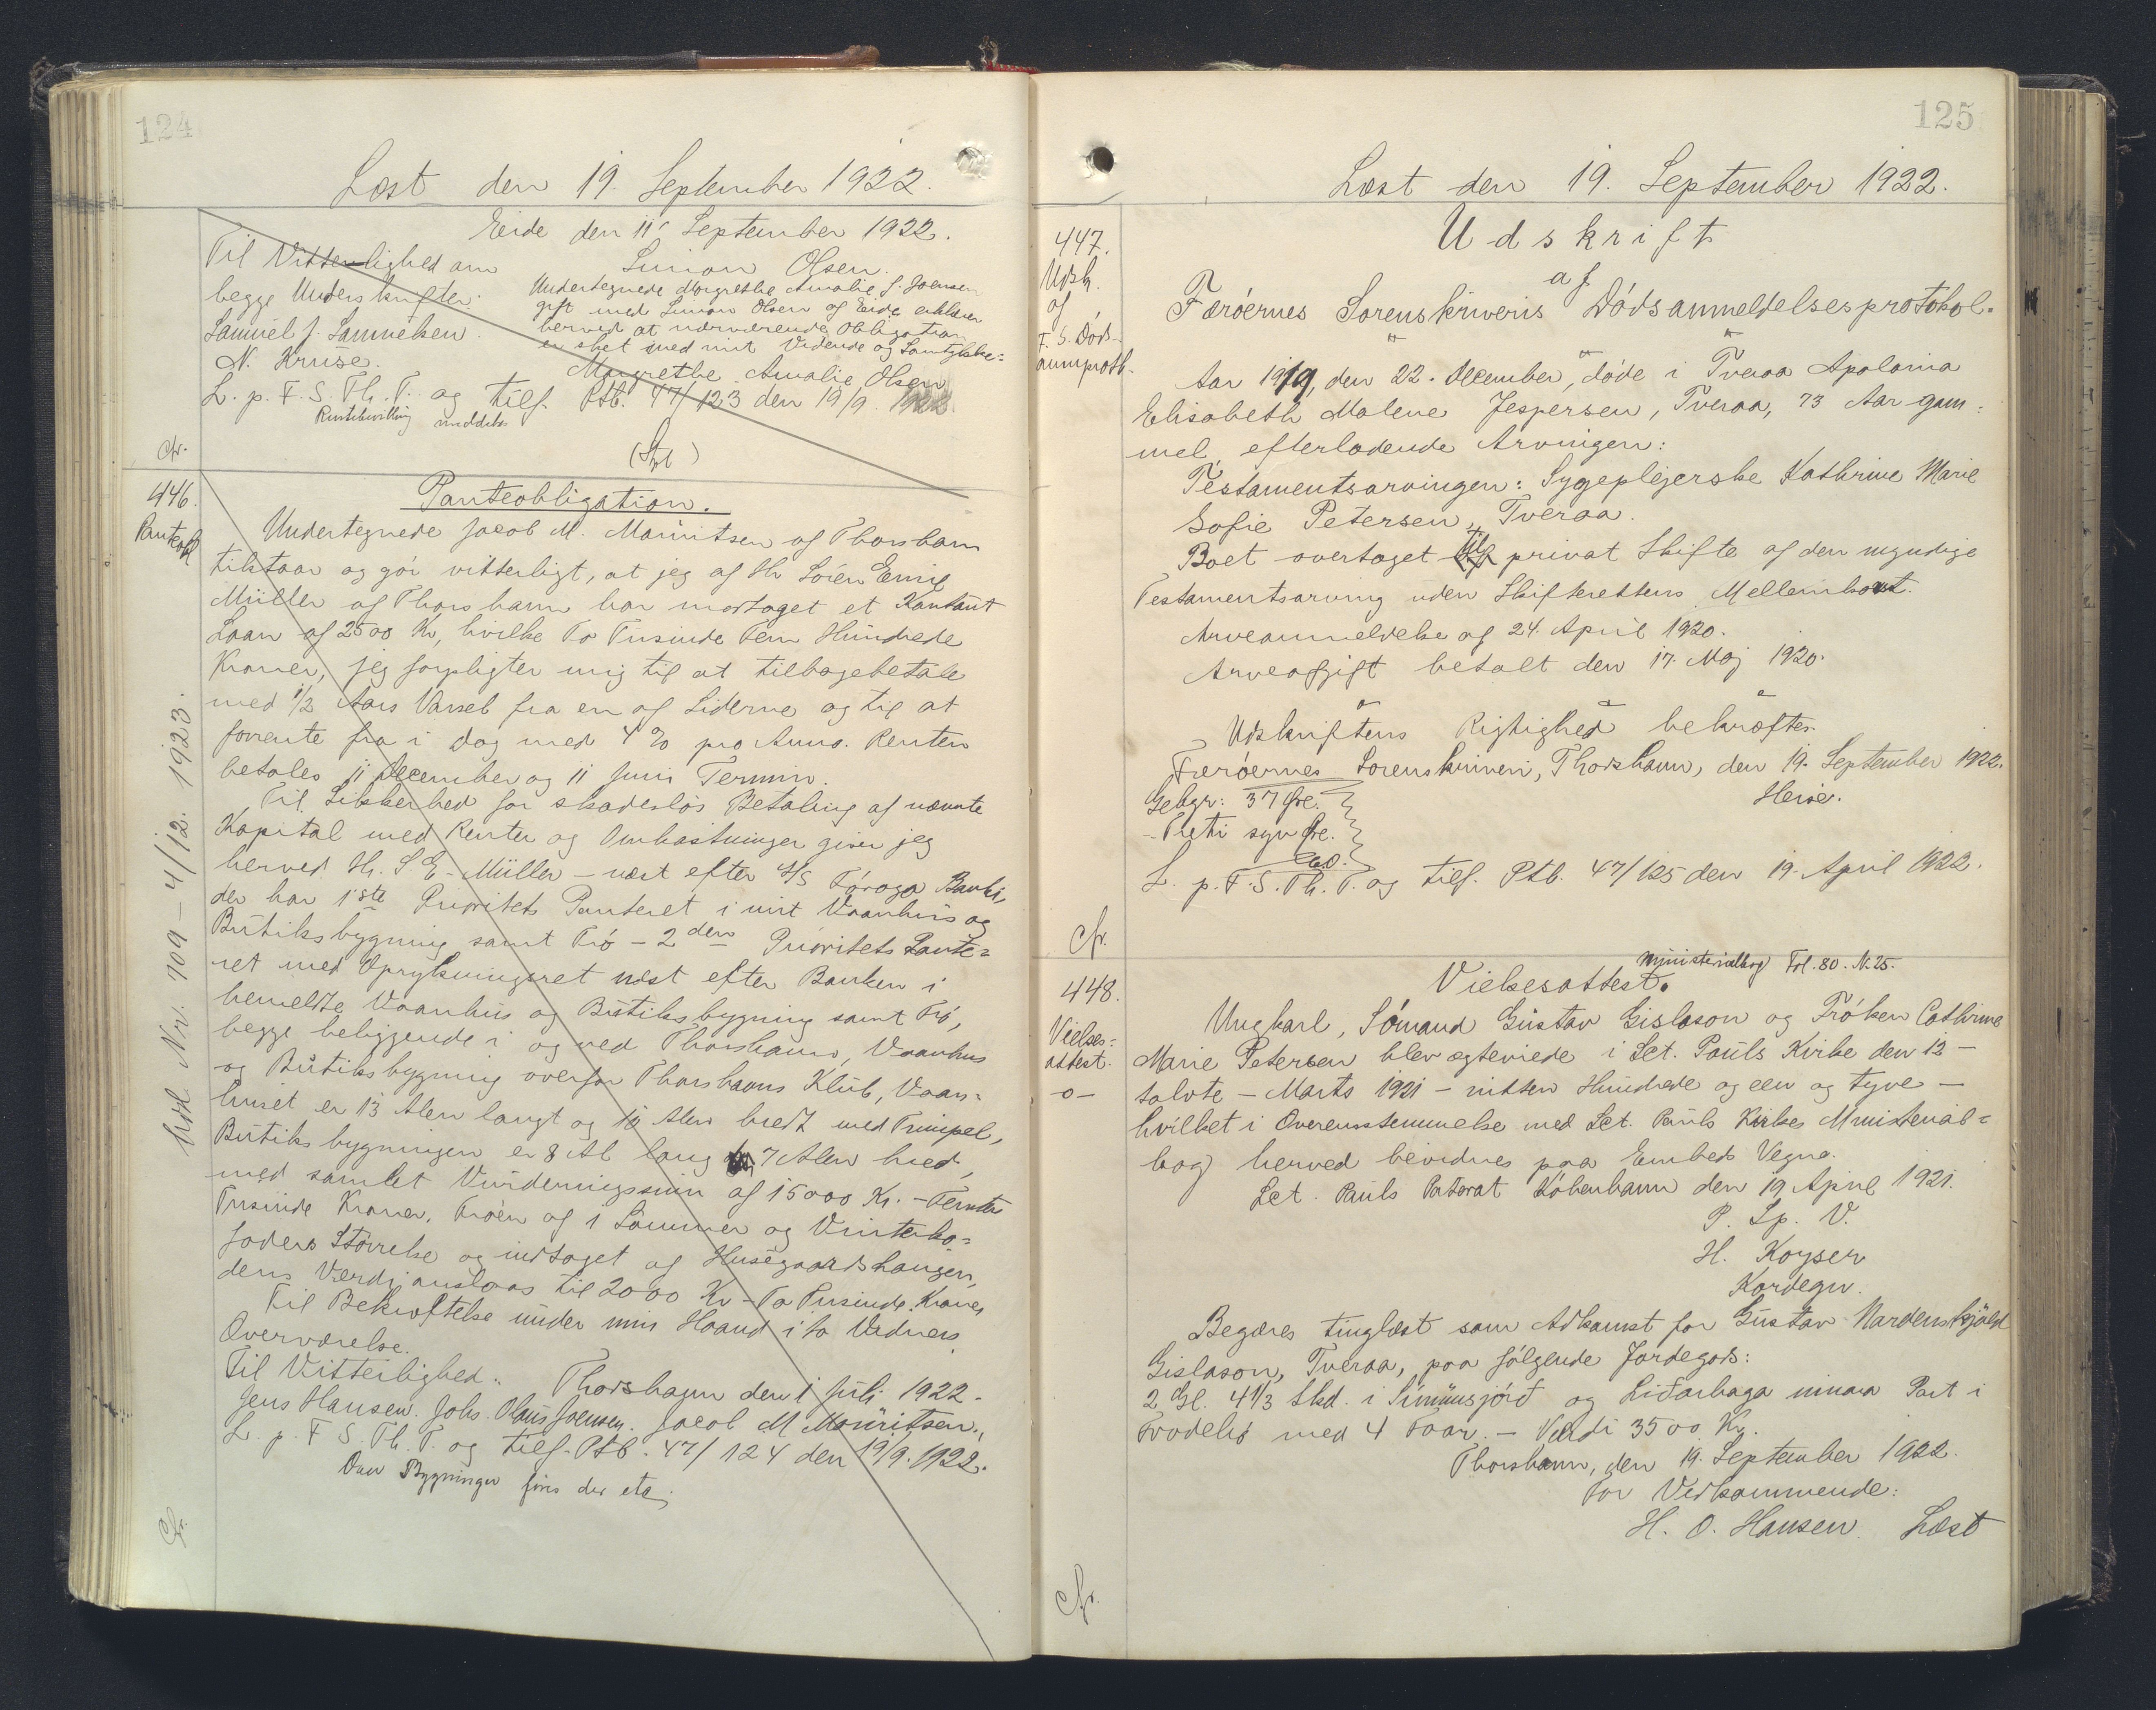 124
Læst den 19. September 1922.
Eide den 11' September 1922.
Til Vitterlighed om
begge Underskrifter:
Samuel J. Samuelsen
N. Kruse.
Simon Olsen.
Undertegnede Margrethe Amalie J. Joensen
gift med Simon Olsen af Eide erklærer
herved at nærværende Obligation
er sket med mit Vidende og Samtykke=
Margrethe Amalie Olsen
L. p. F. S. Th. T. og tilf. Ptb. 47/123 den 19/9. 1922
Rentebevilling meddelt
cfr.
446.
Panteobl
Panteobligation.
Undertegnede Jacob M. Mouritsen af Thorshavn
tilstaar og gør vitterligt, at jeg af Hr Sören Emil
Müller af Thorshavn har modtaget et Kontant
Laan af 2500 Kr, hvilke To Tusinde Fem Hundrede
Kroner, jeg forpligter mig til at tilbagebetale
med 1/2 Aars Varsel fra en af Siderne og til at
forrente fra i Dag med 4% pro Anno. Renten
betales 11 December og 11 Juni Termin.
Til Sikkerhed for skadesløs Betaling af nævnte
Kapital med Renter og Omkostninger giver jeg
herved Hr. S E. Müller – næst efter A/S Føroya Banki,
der har 1ste Prioritets Panteret i mit Vaanhus og
Butiksbygning samt Trö – 2den Prioritets Pante=
ret med Oprykningsret næst efter Banken i
bemeldte Vaanhus og Butiksbygning samt Trö,
begge beliggende i og ved Thorshavn, Vaanhus
og Butiksbygning overfor Thorshavns Klub, Vaan=
huset er 13 Alen langt og 10 Alen bredt med Trempel,
Butiksbygningen er 8 Al lang 7 Alen bred,
med samlet Vurderingssum af 15000 Kr. – Femten
Tusinde Kroner. Tröen af 1 Sommer og Vinterko=
foders Størrelse og indtaget af Husegaardshaugen,
dens Værdi anslaas til 2000 Kr – To Tusinde Kroner
Til Bekræftelse under min Haand i to Vidners
Overværelse.
Til Vitterlighed: Thorshavn den 1 Juli 1922.
Jens Hansen. Johs. Olaus Joensen. Jacob M Mouritsen.
L. p. F S. Th. T. og tilf. Ptb. 47/124 den 19/9. 1922.
Over Bygninger
cfr.
Nr. 709 – 4/12. 1923.
125
Læst den 19. September 1922.
447.
Udsk.
af
F. S. Døds-
anmprotk.
Udskrift
af
Færöernes Sorenskriveris Dödsanmeldelsesprotokol.
Aar 1919, den 22. December, döde i Tveraa Apolonia
Elisabeth Malene Jespersen, Tveraa, 73 Aar gam=
mel, efterladende Arvingen:
Testamentsarvingen: Sygeplejerske Kathrine Marie
Sofie Petersen, Tveraa.
Boet overtaget til privat Skifte af den myndige
Testamentsarving uden Skifterettens Mellemkomst.
Arveanmeldelse af 24. April 1920.
Arveafgift betalt den 17. Maj 1920.
Udskriftens Rigtighed bekræftes
Færöernes Sorenskriveri, Thorshavn, den 19. September 1922.
Heise.
Gebyr: 37 Øre.
– Treti syv Øre.
L. p. F. S. Th. T. og tilf. Ptb. 47/125 den 19. April 1922.
cfr.
448.
Vielses=
attest.
-o-
Ministerialbog Fol. 80. N. 25.
Vielsesattest.
Ungkarl, Sömand Gustav Gislason og Fröken Cathrine
Marie Petersen blev ægteviede i Sct. Pauls Kirke den 12 –
tolvte – Marts 1921 – nitten Hundrede og een og tyve –
hvilket i Overensstemmelse med Sct. Pauls Kirkes Ministerial=
bog herved bevidnes paa Embeds Vegne.
Sct. Pauls Pastorat Köbenhavn den 19 April 1921.
P. Sp. V.
H. Koyser
Kordegn.
Begæres tinglæst som Adkomst for Gustav Nordenskjöld
Gislason, Tveraa, paa fölgende Jordegods:
2 Gl. 4 1/3 Skd. i Símunsjörð og Liðarhaga innara Part i
Frodebö med 4 Faar. – Værdi 3500 Kr.
Thorshavn, den 19. September 1922.
For Vedkommende:
H. O. Hansen. Læst
cfr.